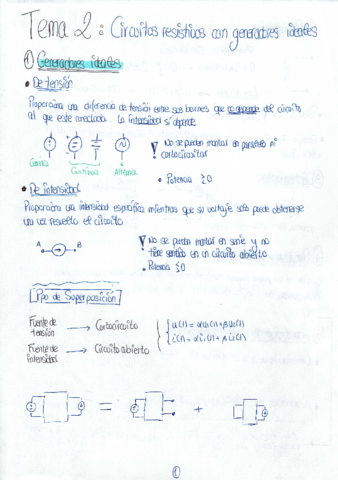 Tema 2: Circuitos resistivos con generadores ideales
① Generadores ideales
• De tensión
Proporciona una diferencia de tensión entre sus bornes que no depende del circuito
al que este conectada. La intensidad sí depende
No se pueden montar en paralelo ni
cortocircuitar
Continua
Alterna
• Potencia ≥0
• De intensidad
Proporciona una intensidad específica mientras que su voltaje solo puede obtenerse
una vez resuelto el circuito
A
B
No se pueden montar en serie y no
tiene sentido en un circuito abierto
• Potencia ≤0
Ppo de Superposición
Fuente de tensión → Cortocircuito
Fuente de intensidad → Circuito abierto
= +